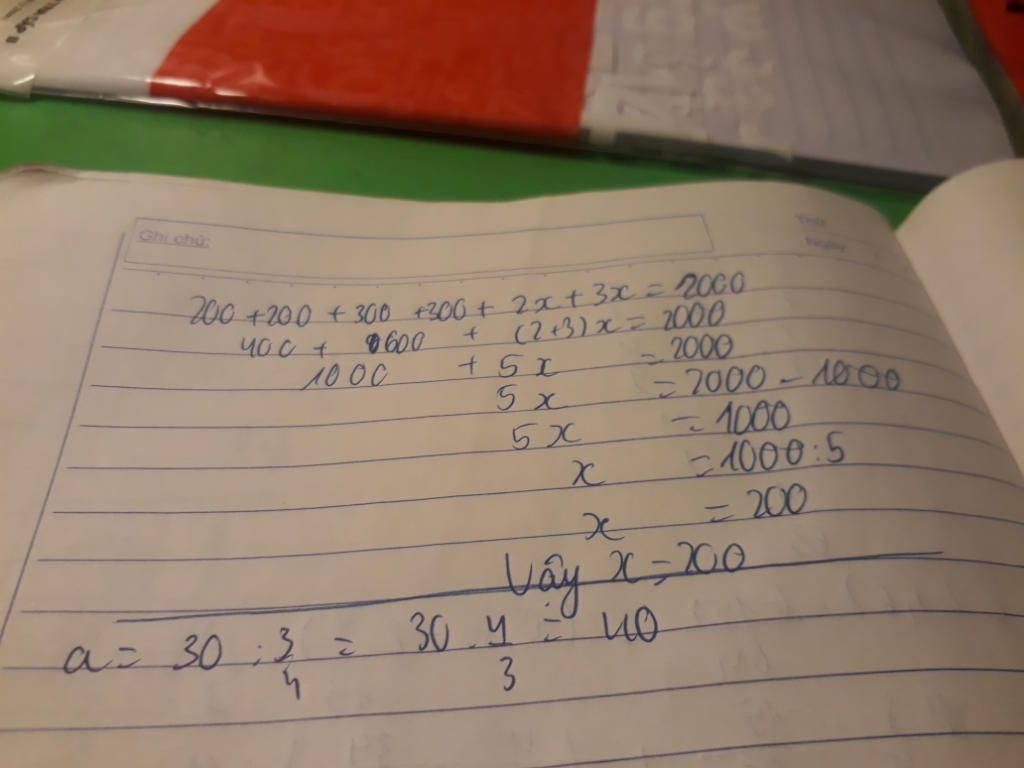 Ghi chú:
Thứ
Ngày
200 + 200 + 300 + 300 + 2x + 3x = 2000
400 + 600 + (2+3)x = 2000
1000 + 5x = 2000
5x = 2000 - 1000
5x = 1000
x = 1000 : 5
x = 200
Vậy x = 200
a = 30 : 3/4 = 30 . 4/3 = 40